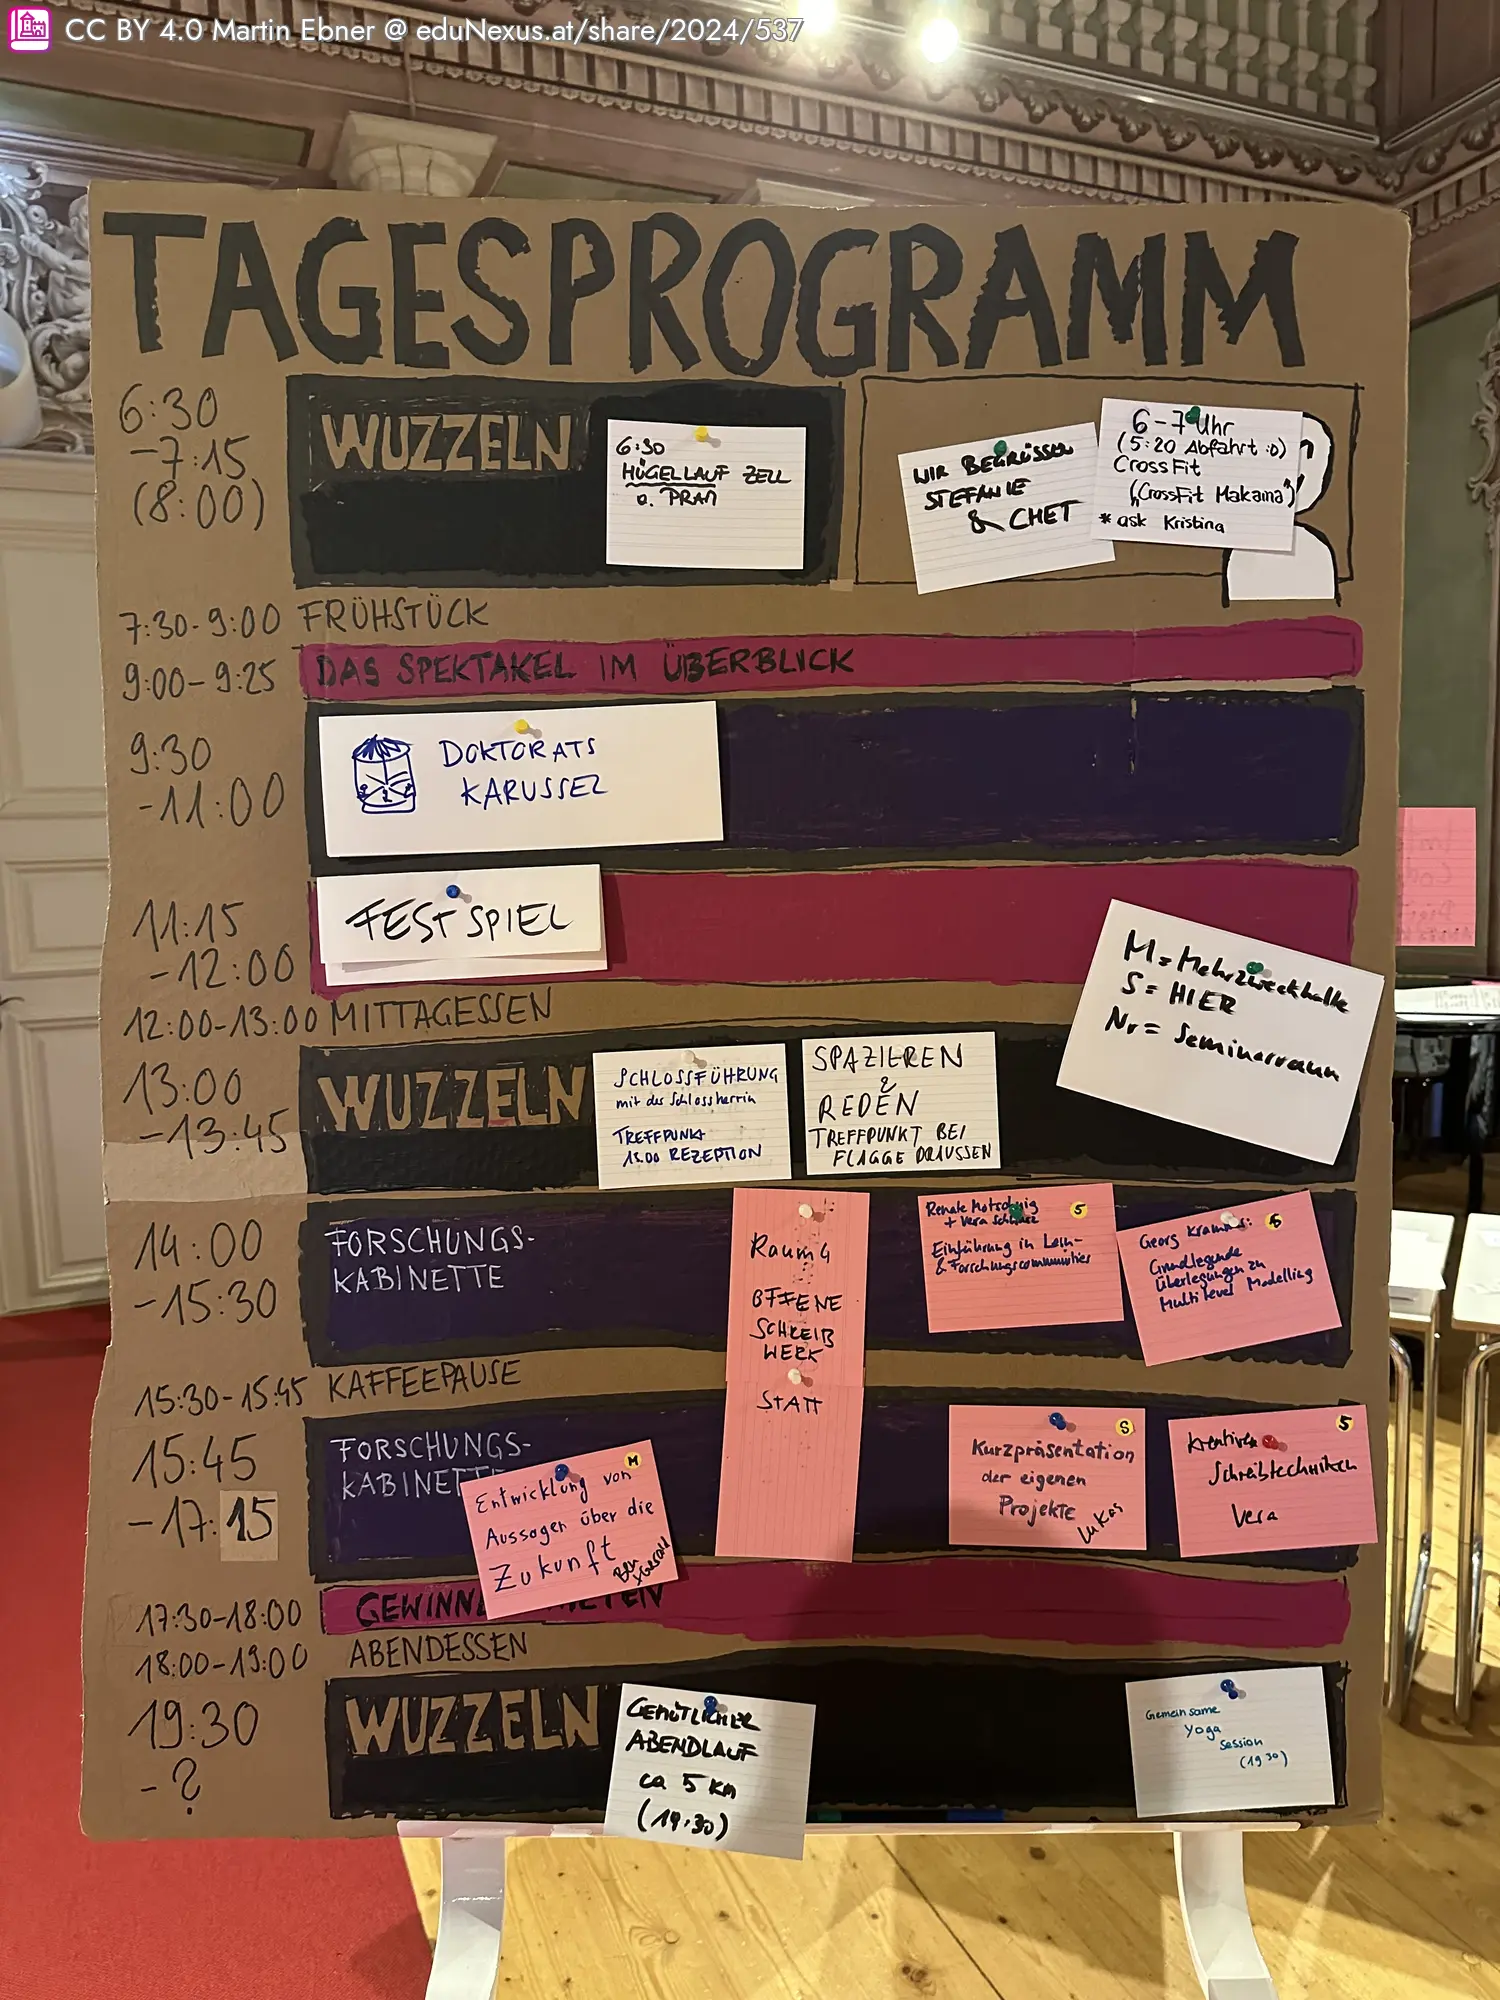 CC BY 4.0 Martin Ebner @ eduNexus.at/share/2024/537
TAGESPROGRAMM
6:30
-7:15
(8:00)
WUZZELN
6:30
HÜGELLAUF ZELL
a. PRAM
WIR BEGRÜSSEN
STEFANIE
& CHET
6-7 Uhr
(5:20 Abfahrt :D)
CrossFit
("CrossFit Makama")
* ask Kristina
7:30-9:00 FRÜHSTÜCK
9:00-9:25 DAS SPEKTAKEL IM ÜBERBLICK
9:30
-11:00
DOKTORATS
KARUSSEL
11:15
-12:00
FESTSPIEL
12:00-13:00 MITTAGESSEN
M = Mehrzweckhalle
S = HIER
Nr = Seminarraum
13:00
-13:45
WUZZELN
SCHLOSSFÜHRUNG
mit der Schlossherrin
TREFFPUNKT
REZEPTION
SPAZIEREN
&
REDEN
TREFFPUNKT BEI
FLAGGE DRAUSSEN
14:00
-15:30
FORSCHUNGS-
KABINETTE
Raum 4
OFFENE
SCHREIB
WERK
STATT
Renate Motschnig
+ Vera
5
Einführung in Lern-
& Forschungscommunities
Georg
Grundlegende
Überlegungen zu
Multilevel Modelling
15:30-15:45 KAFFEEPAUSE
15:45
-17:15
FORSCHUNGS-
KABINETTE
M
Entwicklung von
Aussagen über die
Zukunft
S
Kurzpräsentation
der eigenen
Projekte
Lukas
5
Kreatives
Schreibtechniken
Vera
17:30-18:00
18:00-19:00 ABENDESSEN
19:30
- ?
WUZZELN
GEMÜTLICHER
ABENDLAUF
ca 5 km
(19:30)
Gemeinsame
Yoga
Session
(19 30)